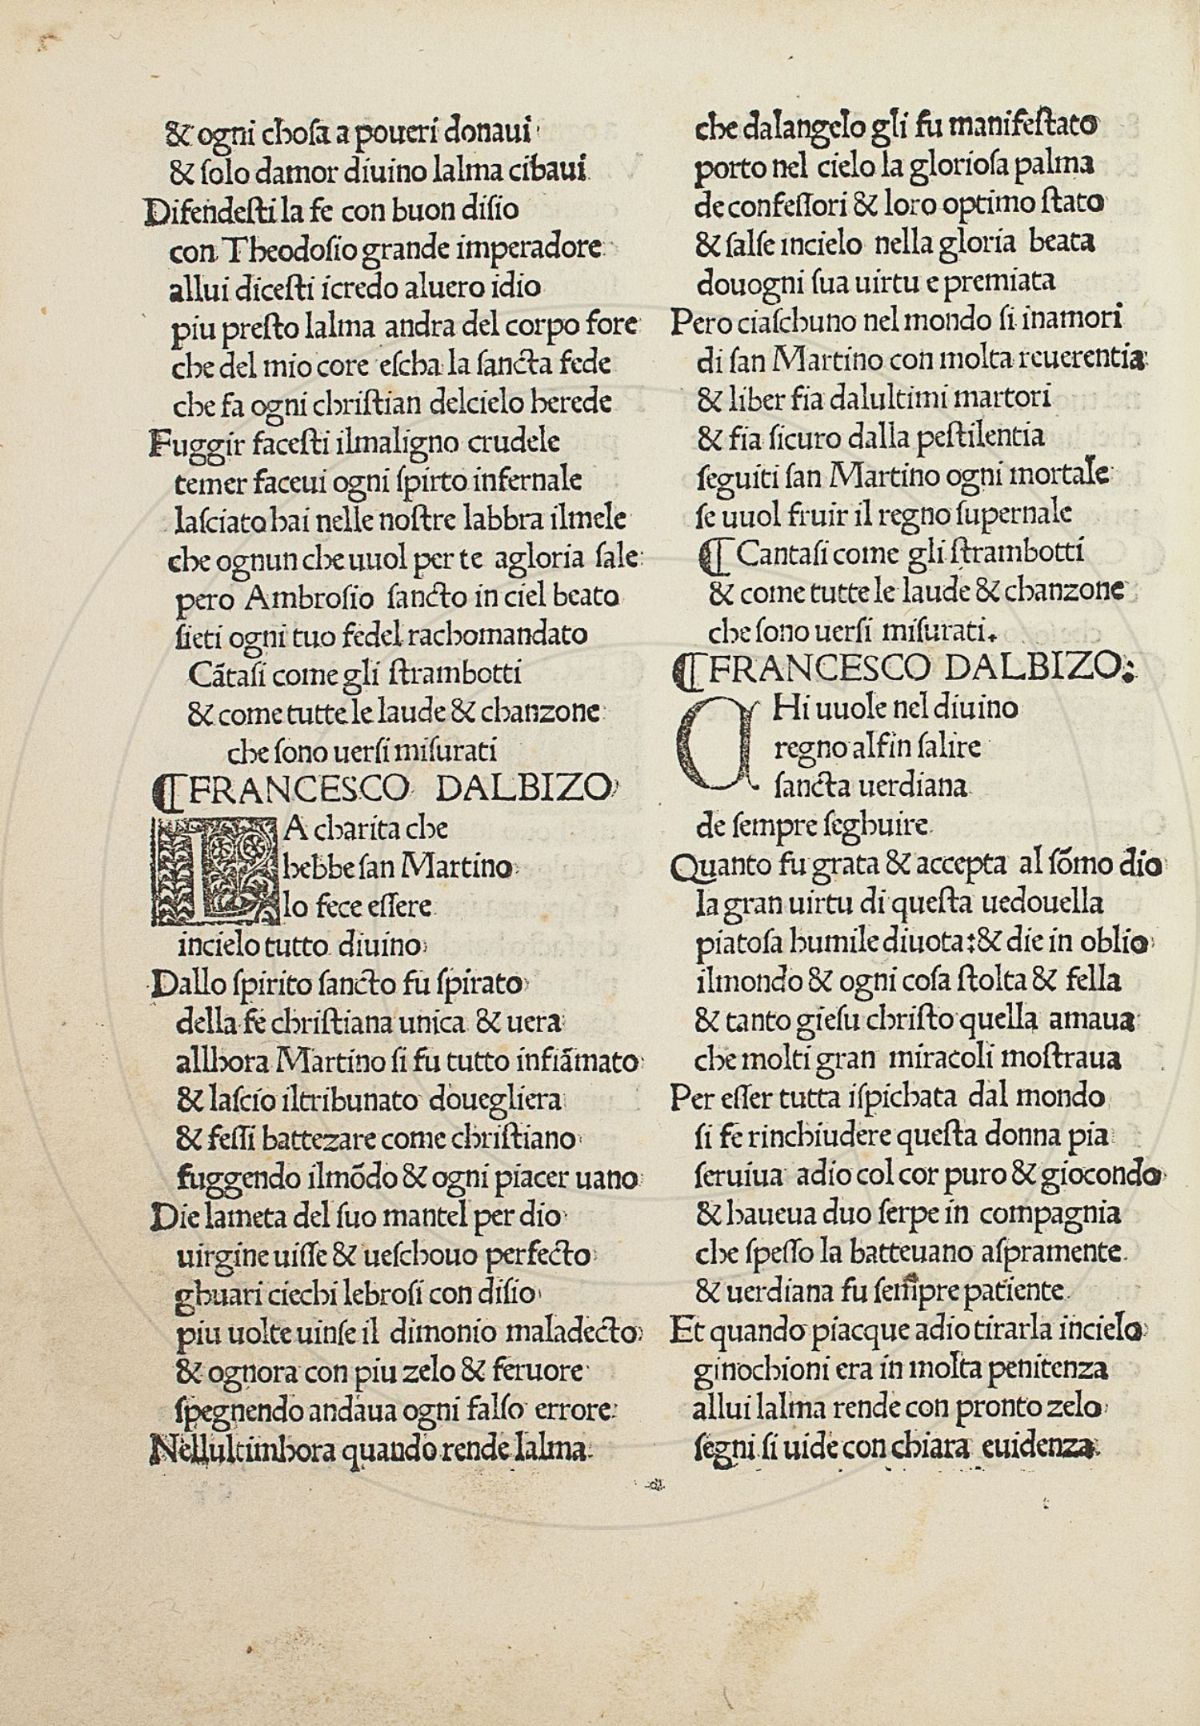 & ogni chosa a poueri donaui
& solo damor diuino lalma cibaui
Difendesti la fe con buon disio
con Theodosio grande imperadore
allui dicesti icredo aluero idio
piu presto lalma andra del corpo fore
che del mio core escha la sancta fede
che fa ogni christian delcielo herede
Fuggir facesti ilmaligno crudele
temer faceui ogni spirto infernale
lasciato hai nelle nostre labbra ilmele
che ognun che uuol per te agloria sale
pero Ambrosio sancto in ciel beato
sieti ogni tuo fedel rachomandato
Cãtasi come gli strambotti
& come tutte le laude & chanzone
che sono uersi misurati
¶FRANCESCO DALBIZO
LA charita che
hebbe san Martino
lo fece essere
incielo tutto diuino
Dallo spirito sancto fu spirato
della fe christiana unica & uera
allhora Martino si fu tutto infiãmato
& lascio iltribunato douegliera
& fessi battezare come christiano
fuggendo ilmõdo & ogni piacer uano
Die lameta del suo mantel per dio
uirgine uisse & ueschouo perfecto
ghuari ciechi lebrosi con disio
piu uolte uinse il dimonio maladecto
& ognora con piu zelo & feruore
spegnendo andaua ogni falso errore
Nellultimhora quando rende lalma
che dalangelo gli fu manifestato
porto nel cielo la gloriosa palma
de confessori & loro optimo stato
& salse incielo nella gloria beata
douogni sua uirtu e premiata
Pero ciaschuno nel mondo si inamori
di san Martino con molta reuerentia
& liber fia dalultimi martori
& fia sicuro dalla pestilentia
seguiti san Martino ogni mortale
se uuol fruir il regno supernale
¶ Cantasi come gli strambotti
& come tutte le laude & chanzone
che sono uersi misurati.
¶FRANCESCO DALBIZO:
CHi uuole nel diuino
regno alfin salire
sancta uerdiana
de sempre seghuire
Quanto fu grata & accepta al sõmo dio
la gran uirtu di questa uedouella
piatosa humile diuota:& die in oblio
ilmondo & ogni cosa stolta & fella
& tanto giesu christo quella amaua
che molti gran miracoli mostraua
Per esser tutta ispichata dal mondo
si fe rinchiudere questa donna pia
seruiua adio col cor puro & giocondo
& haueua duo serpe in compagnia
che spesso la batteuano aspramente
& uerdiana fu sempre patiente
Et quando piacque adio tirarla incielo
ginochioni era in molta penitenza
allui lalma rende con pronto zelo
segni si uide con chiara euidenza